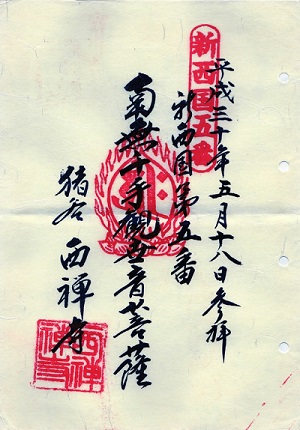 新西国五番
平成三十年五月十八日参拝
新西国第五番
千手観世音菩薩
西禅寺